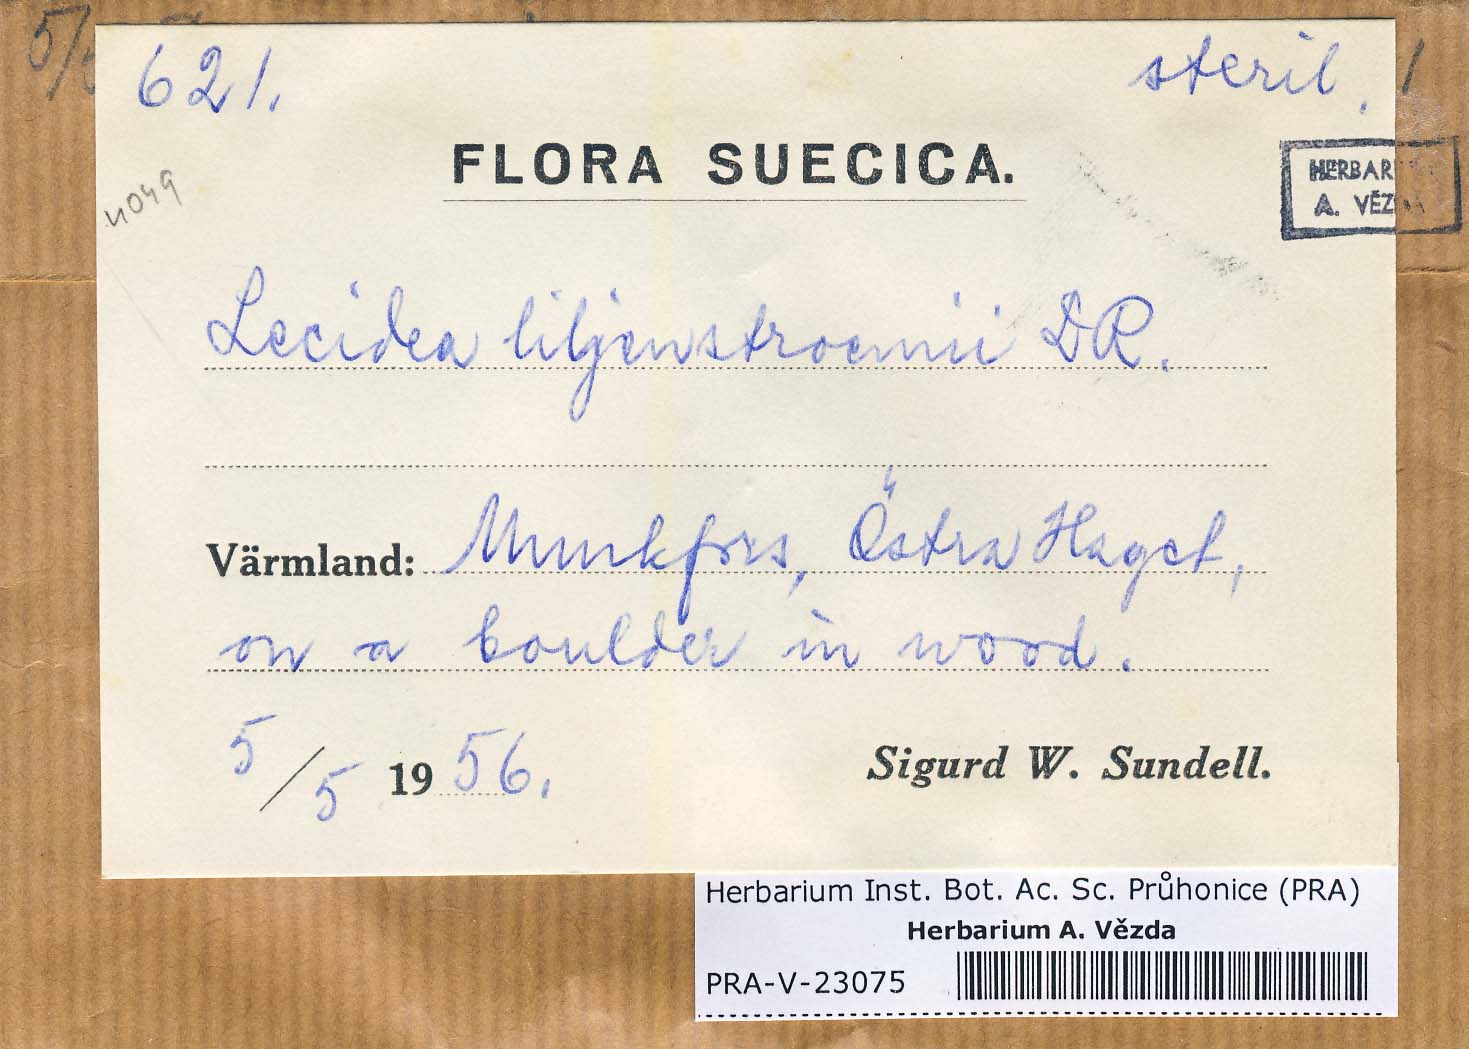 621.
steril.
FLORA SUECICA.
HERBAR
A. VĚZDA
4049
Lecidea liljenstroemii DR.
Värmland: Munkfors, Östra Haget,
on a boulder in wood.
5/5 1956.
Sigurd W. Sundell.
Herbarium Inst. Bot. Ac. Sc. Průhonice (PRA)
Herbarium A. Vězda
PRA-V-23075